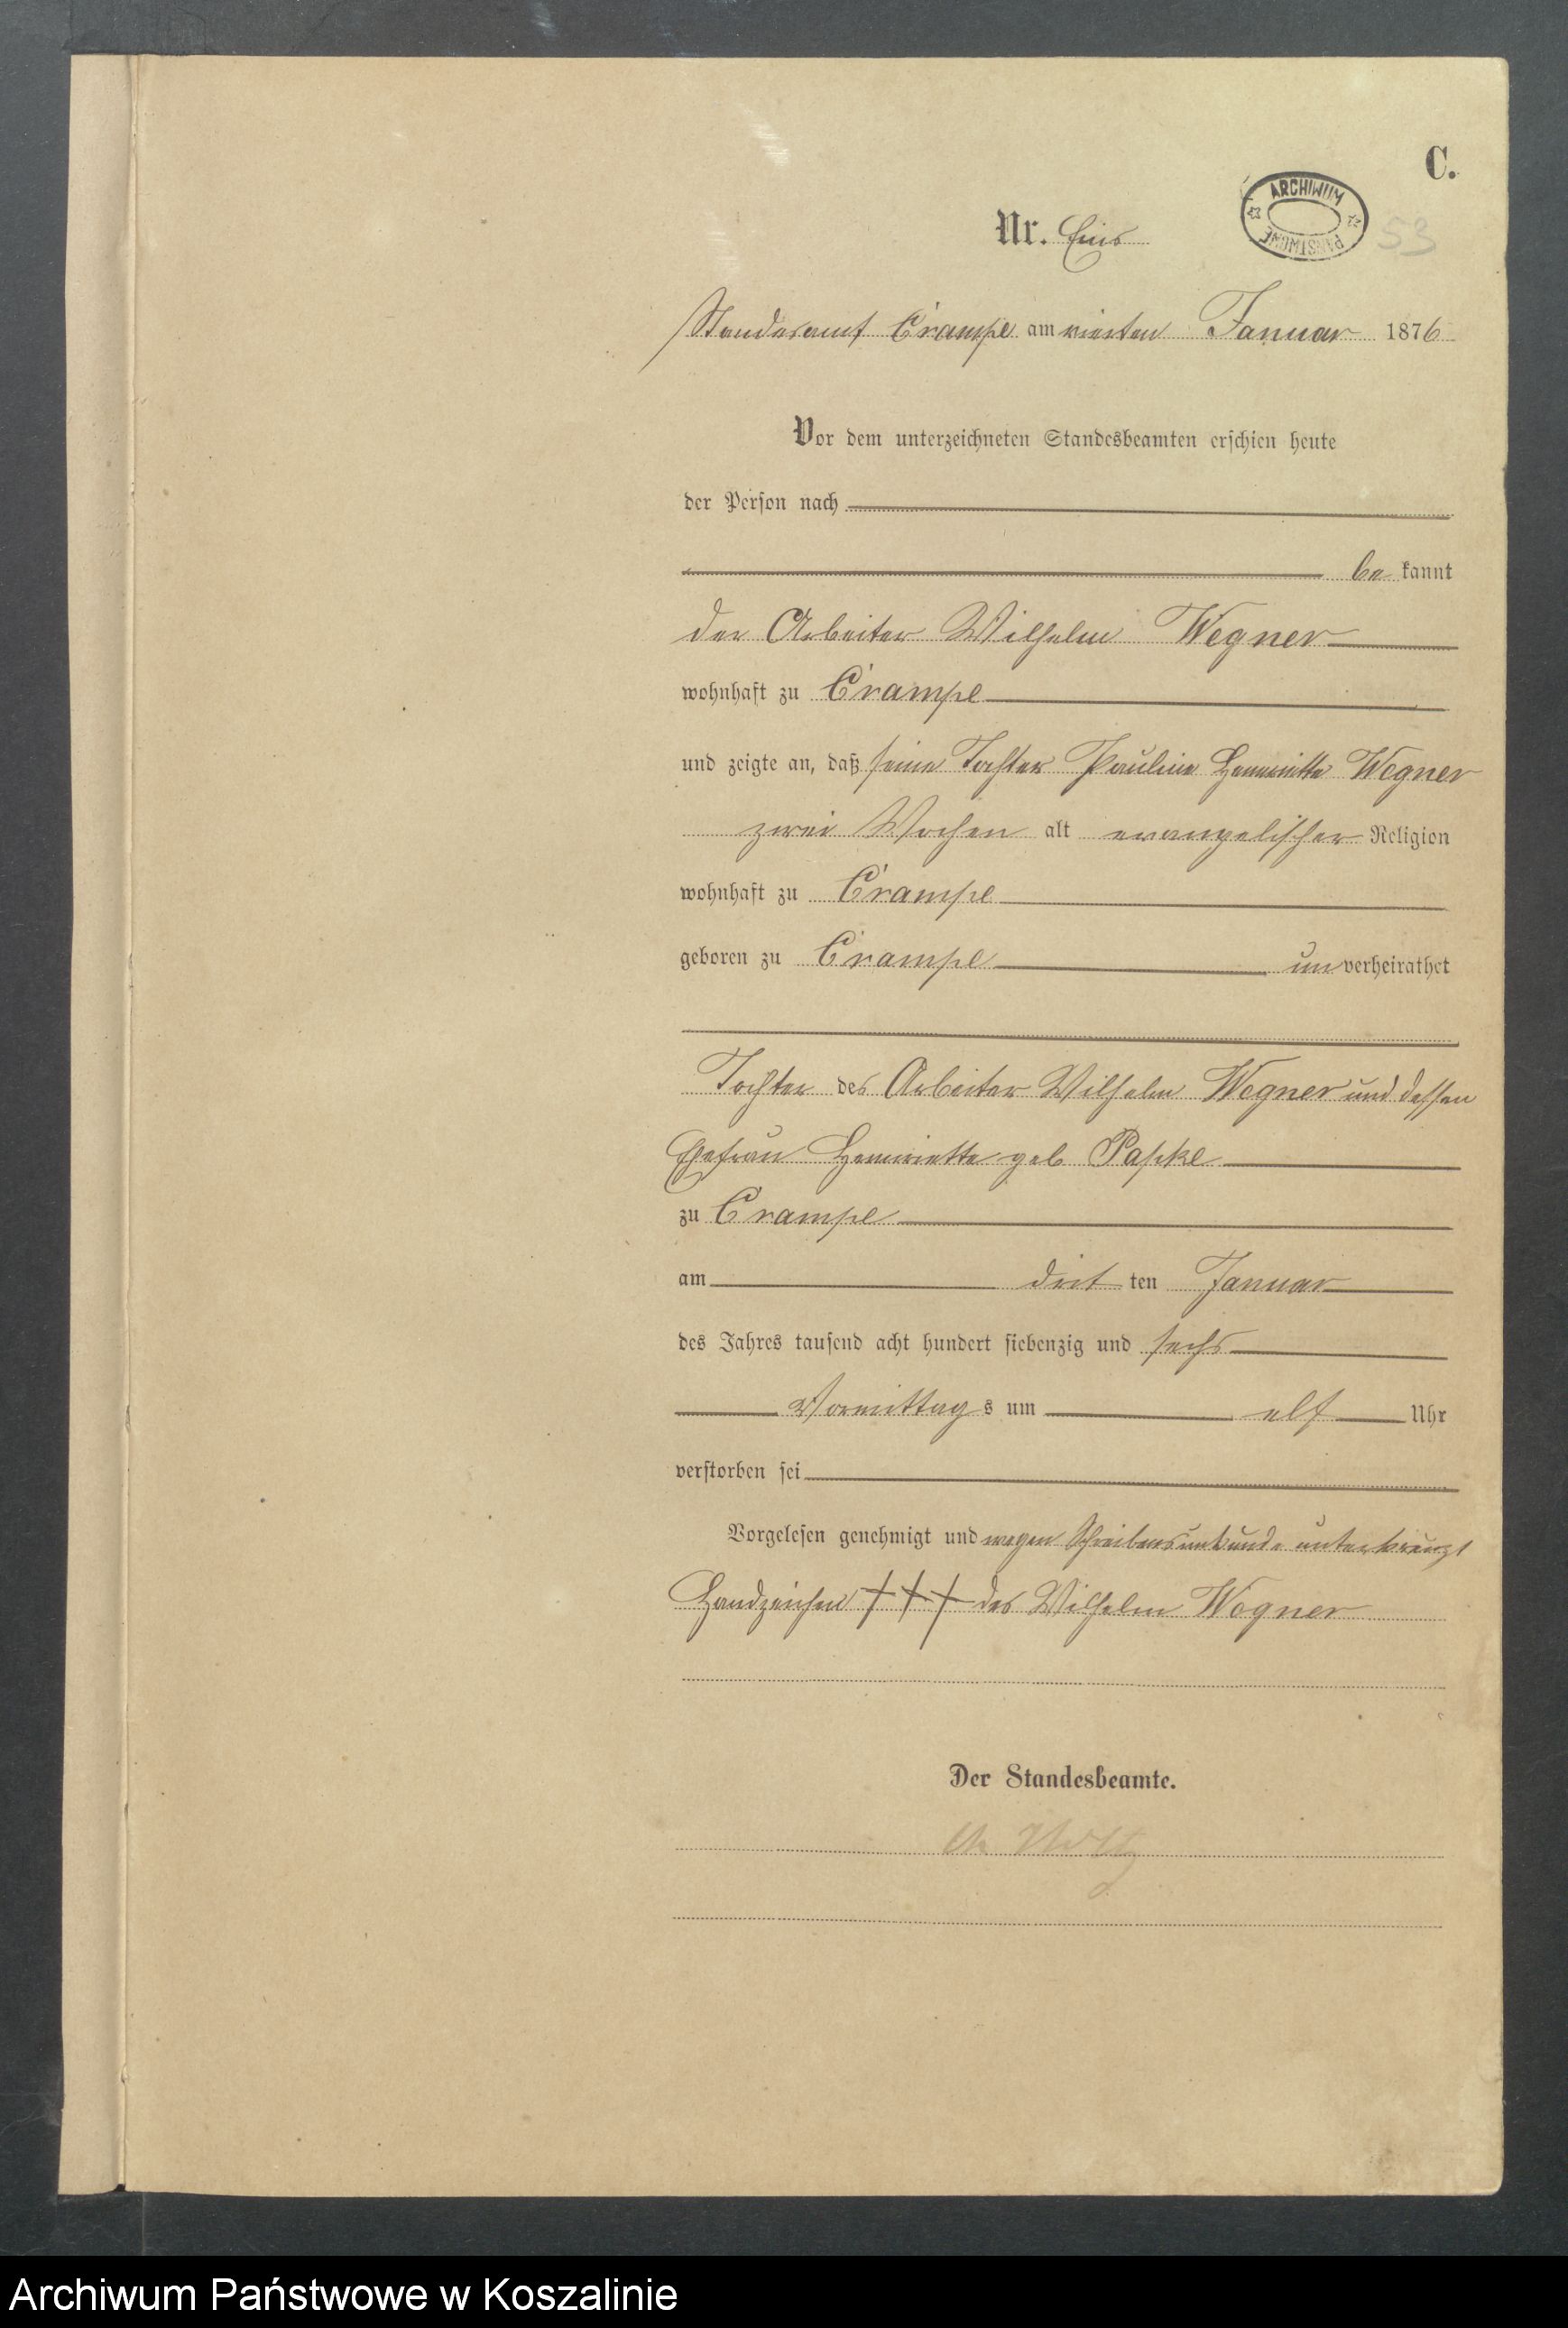 C.
ARCHIWUM PAŃSTWOWE
53
Nr. Eins
Standesamt Crampe am vierten Januar 1876
Vor dem unterzeichneten Standesbeamten erschien heute
der Person nach
be kannt
der Arbeiter Wilhelm Wegner
wohnhaft zu Crampe
und zeigte an, daß seine Tochter Pauline Henriette Wegner
zwei Wochen alt evangelischer Religion
wohnhaft zu Crampe
geboren zu Crampe un verheirathet
Tochter des Arbeiter Wilhelm Wegner und dessen
Ehefrau Henriette geb Papke
zu Crampe
am drit ten Januar
des Jahres tausend acht hundert siebenzig und sechs
Vormittag s um elf Uhr
verstorben sei
Vorgelesen genehmigt und wegen Schreibensunkunde unterkreuzt
Handzeichen +++ des Wilhelm Wegner
Der Standesbeamte.
Archiwum Państwowe w Koszalinie